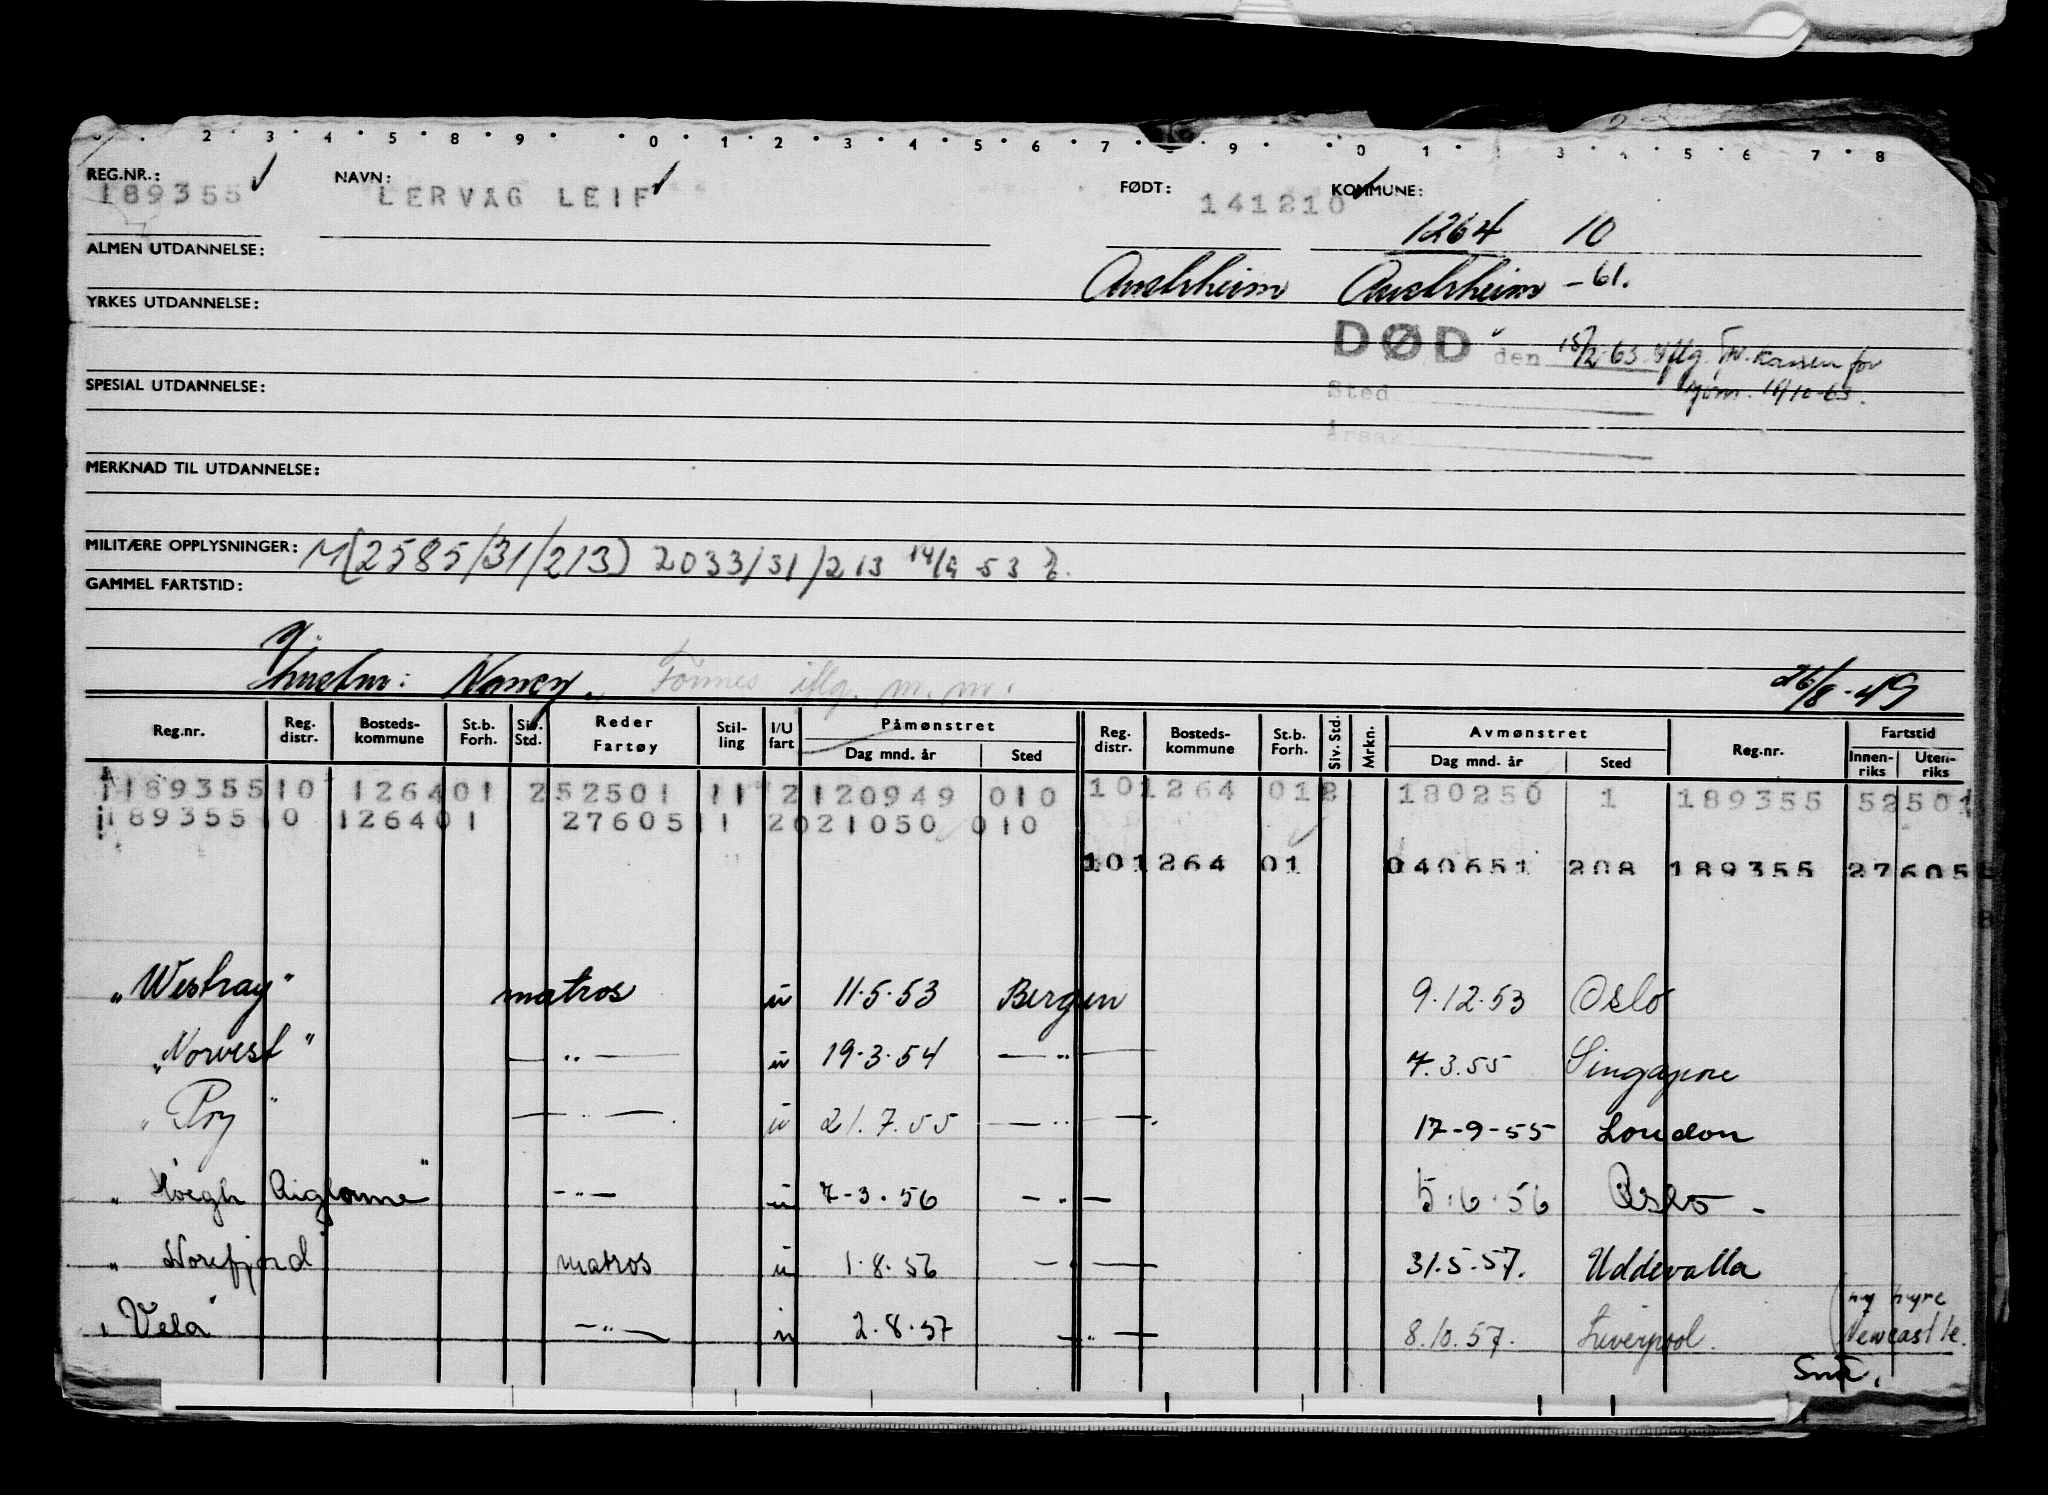 2 3 4 5 8 9 0 1 2 3 4 5 6 7 9 0 1 3 4 5 6 7 8
REG.NR.: NAVN: FØDT: KOMMUNE:
189355 LERVÅG LEIF 141210
1264 10
ALMEN UTDANNELSE:
Austrheim Austrheim -61.
YRKES UTDANNELSE:
DØD den 15/2-63 iflg. Tr.kassen for
SPESIAL UTDANNELSE:
Sted
Årsak
MERKNAD TIL UTDANNELSE:
MILITÆRE OPPLYSNINGER: M(2585/31/213) 2033/31/213 14/9 53
GAMMEL FARTSTID:
g.
hustru: Nancy. Fonnes iflg. m.m. 26/8-49
Reg.nr. Reg. distr. Bosteds- kommune St.b. Forh. Siv. Std. Reder Fartøy Stil- ling I/U fart Påmønstret Dag mnd. år Sted Reg. distr. Bosteds- kommune St.b. Forh. Siv. Std. Mrkn. Avmønstret Dag mnd. år Sted Reg.nr. Fartstid Innen- riks Uten- riks
189355 10 1264 01 2 52501 11 2 120949 010 10 1264 01 2 180250 1 189355 52501
189355 10 1264 01 27605 11 2 021050 010
10 1264 01 040651 208 189355 27605
"Westray" matros u 11.5.53 Bergen 9.12.53 Oslo
"Norvest" — " — u 19.3.54 — " — 7.3.55 Singapore
"Roy" — " — u 21.7.55 — " — 17-9-55 London
"Høegh Aiglonne" - " — u 7-3.56 — " — 5.6.56 Oslo -
"Norefjord" matros u 1.8.56 — " — 31.5.57. Uddevalla
"Vela" — " — u 2.8.57 — " — 8.10.57. Liverpool. (ny hyre
Newcastle.
Snu.